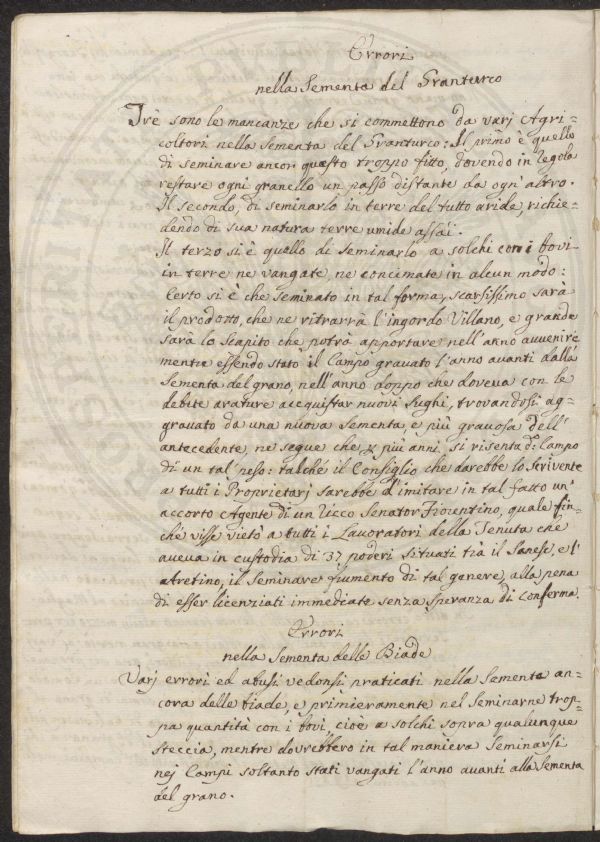 Errori
nella Sementa del Granturco
Trè sono le mancanze che si commettono da varj Agri=
coltori nella Sementa del Granturco: Il primo è quello
di seminare ancor questo troppo fitto, dovendo in regola
restare ogni granello un passo distante da ogn' altro.
Il secondo, di seminarlo in terre del tutto aride, richie=
dendo di sua natura terre umide assai.
Il terzo si è quello di seminarlo a solchi con i bovi
in terre ne vangate, ne concimate in alcun modo:
Certo si è che seminato in tal forma, scarsissimo sarà
il prodotto, che ne ritrarrà l'ingordo Villano, e grande
sarà lo scapito che potrà apportare nell'anno avvenire
mentre essendo stato il Campo gravato l'anno avanti dalla
Sementa del grano, nell'anno doppo che doveva con le
debite arature acquistar nuovi sughi, trovandosi ag=
gravato da una nuova Sementa e più gravosa dell'
antecedente, ne segue che p più anni si risenta d: Campo
di un tal peso: talche il Consiglio che darebbe lo Scrivente
a tutti i Proprietarj sarebbe d'imitare in tal fatto un'
accorto Agente di un ricco Senator Fiorentino, quale fin=
ché visse vietò a tutti i Lavoratori della Tenuta che
aveva in custodia di 37 poderi situati trà il Sanese, e l'
aretino, il seminare frumento di tal genere, alla pena
di esser licenziati immediate senza speranza di conferma.
Errori
nella Sementa delle Biade
Varj errori ed abusi vedonsi praticati nella Sementa an=
cora delle biade, e primieramente nel seminarne trop=
pa quantità con i bovi, cioè a solchi sopra qualunque
steccia, mentre dovrebbero in tal maniera seminarsi
nej Campi soltanto stati vangati l'anno avanti alla Sementa
del grano.